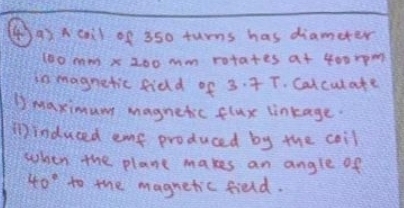 ④ a) A coil of 350 turns has diameter
100 mm x 200 mm rotates at 400 rpm
in magnetic field of 3.7 T. Calculate
i) maximum magnetic flux linkage.
ii) induced emf produced by the coil
when the plane makes an angle of
40° to the magnetic field.